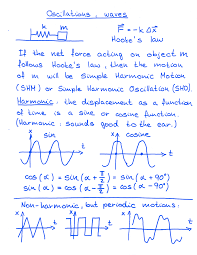 Oscillations, waves
k m
F = -k Δx
Hooke's law
If the net force acting on object m
follows Hooke's law, then the motion
of m will be Simple Harmonic Motion
(SHM) or Simple Harmonic Oscillation (SHO)
Harmonic: the displacement as a function
of time is a sine or cosine function.
(Harmonic: sounds good to the ear.)
x sin x cosine
t t
cos(α) = sin(α + π/2) = sin(α + 90°)
sin(α) = cos(α - π/2) = cos(α - 90°)
Non-harmonic, but periodic motions:
x x x
t t t